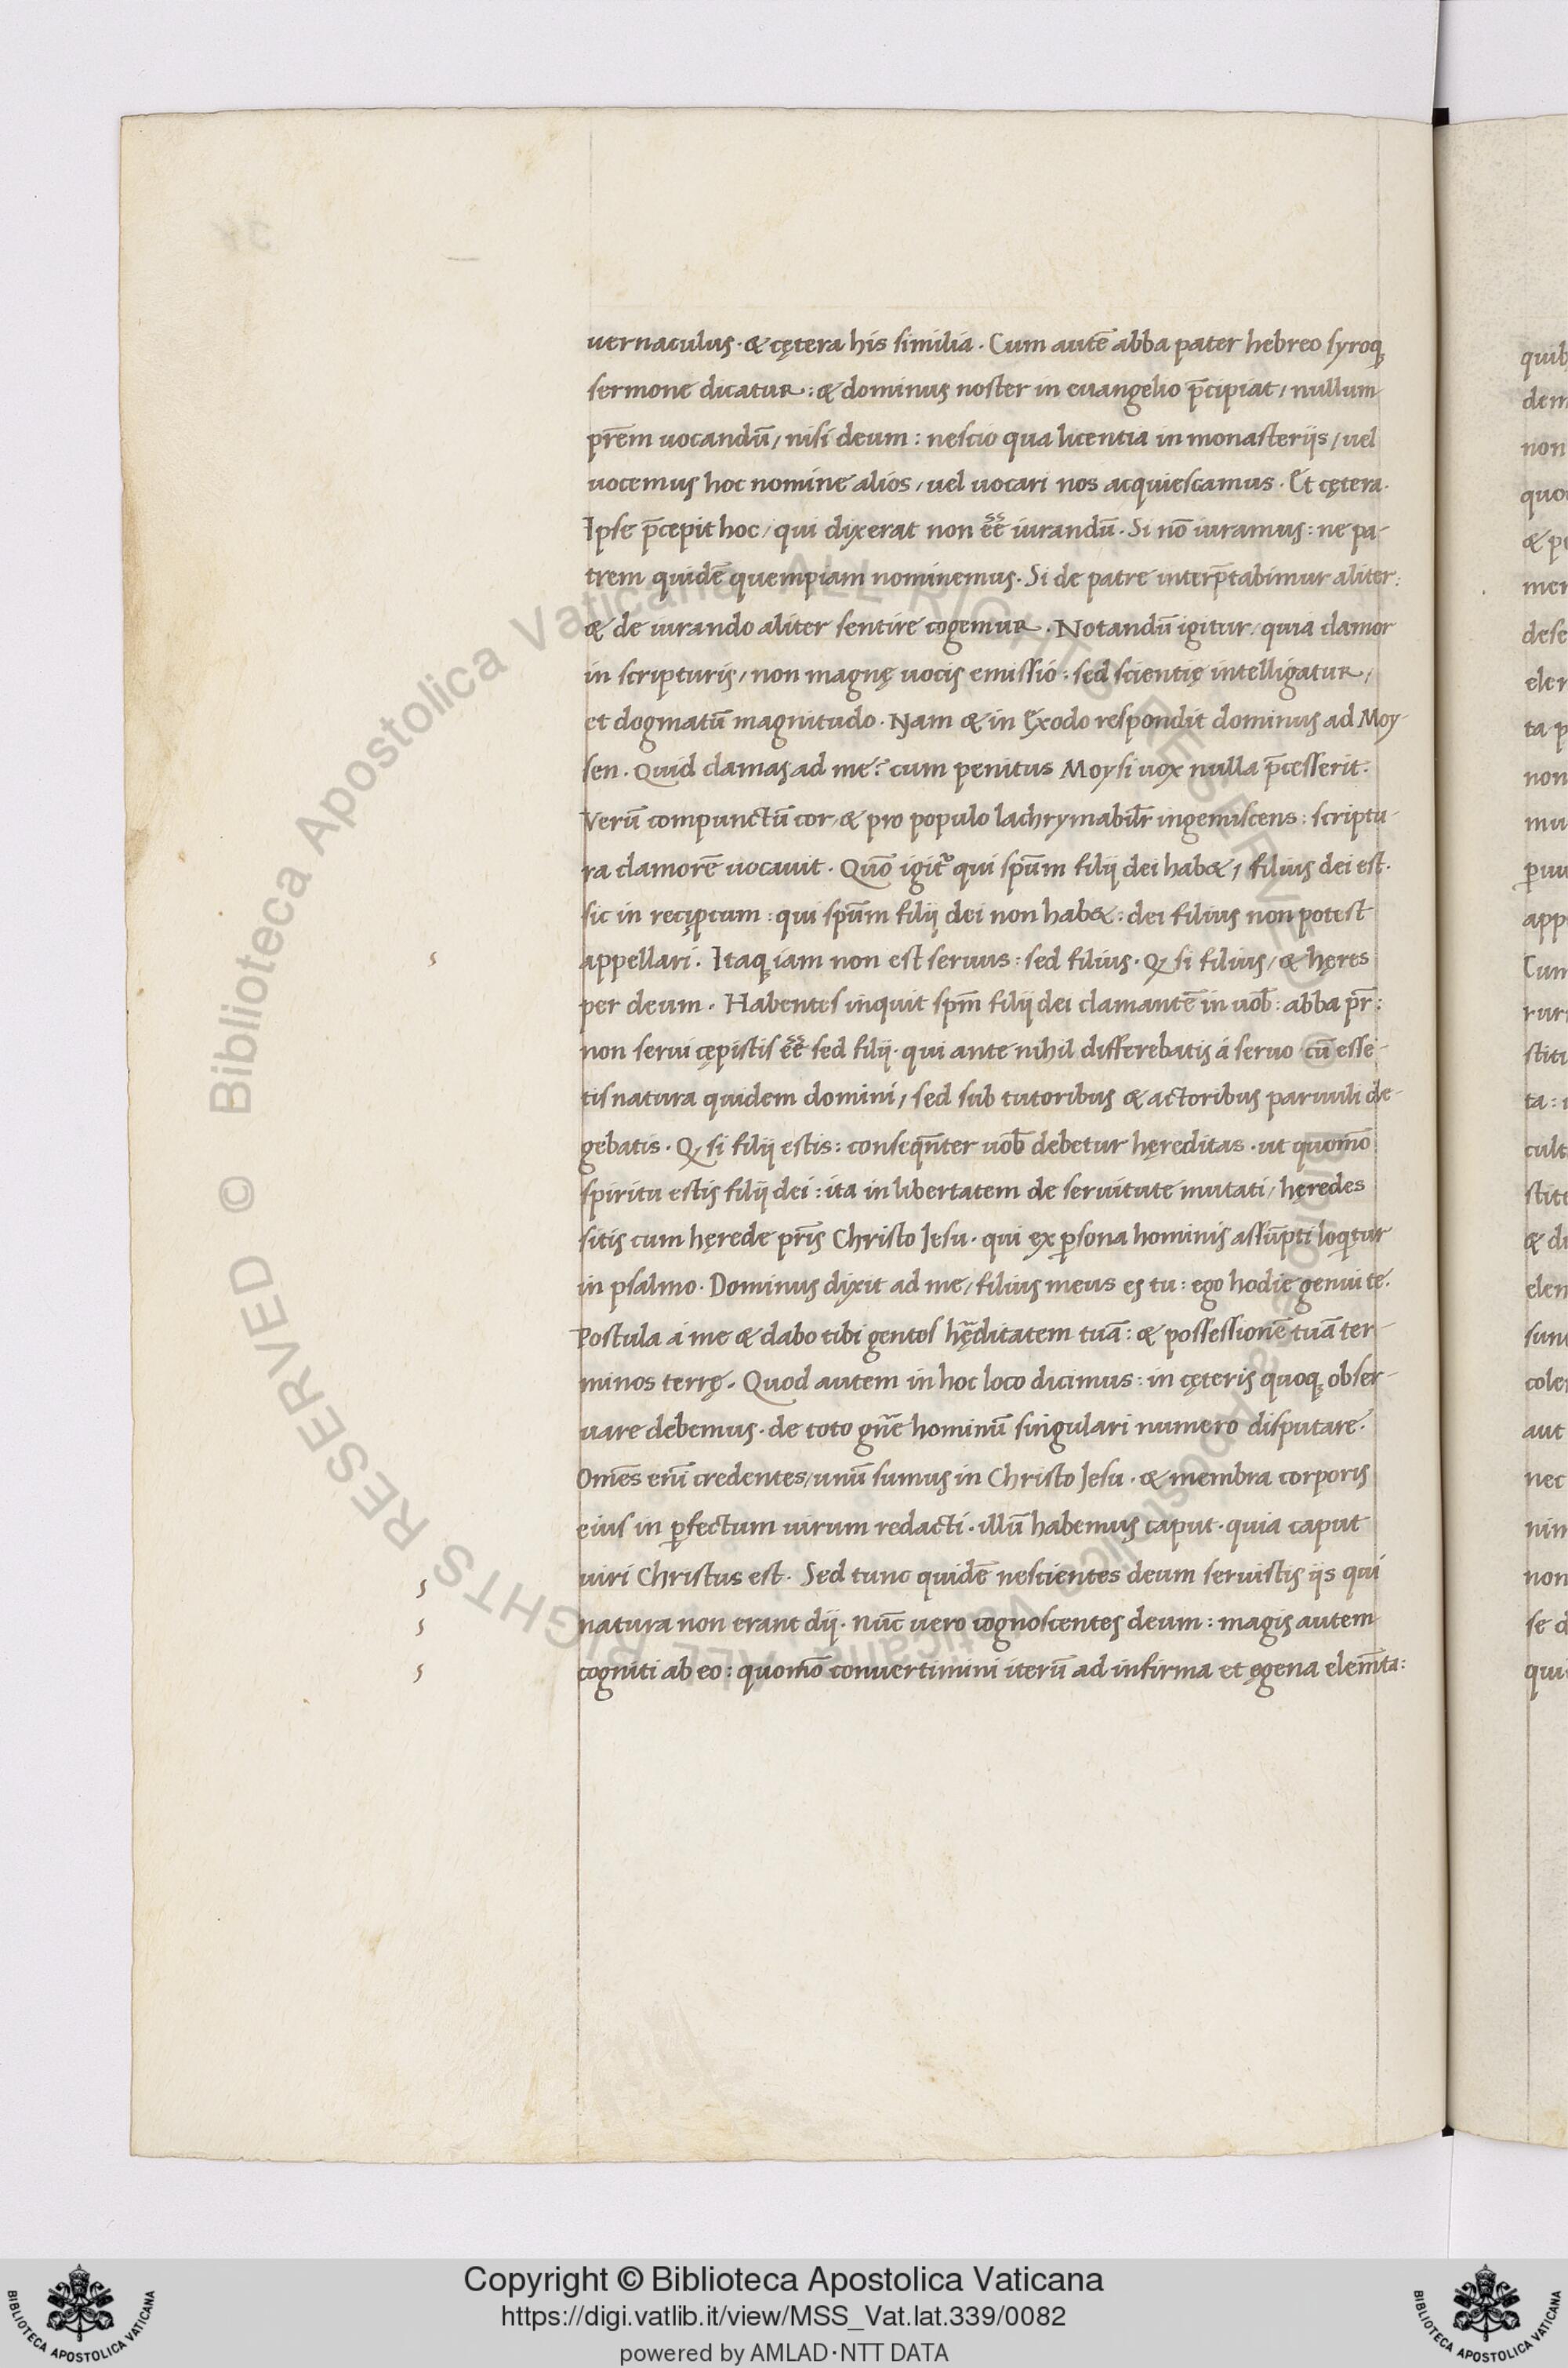 uernaculus · & cętera his similia · Cum autē abba pater hebreo syroq;
sermone dicatur : & dominus noster in euangelio p̄cipiat / nullum
pr̄em uocandū / nisi deum : nescio qua licentia in monasterijs / uel
uocemus hoc nomine alios / uel uocari nos acquiescamus · Et cętera ·
Ipse p̄cepit hoc / qui dixerat non eē̄ iurandū · Si nō iuramus : ne pa-
trem quidē quempiam nominemus · Si de patre interp̄tabimur aliter :
& de iurando aliter sentire cogemur · Notandū igitur / quia clamor
in scripturis / non magnę uocis emissio : sed scientię intelligatur /
et dogmatū magnitudo · Nam & in Exodo respondit dominus ad Moy-
sen · Quid clamas ad me ? cum penitus Moysi uox nulla p̄cesserit ·
Verū compunctū cor / & pro populo lachrymabilr̄ ingemiscens : scriptu-
ra clamorē uocauit · Quō igit̄ qui spūm filij dei hab& / filius dei est ·
sic in recįptum : qui spūm filij dei non hab& : dei filius non potest
appellari · Itaq; iam non est seruus : sed filius · Q̨ si filius / & hęres
per deum · Habentes inquit spm̄ filij dei clamantē in uob̄ : abba pr̄ :
non serui cępistis eē̄ sed filij · qui ante nihil differebatis á seruo cū esse-
tis natura quidem domini / sed sub tutoribus & actoribus paruuli de-
gebatis · Q̨ si filij estis : conseqn̄ter uob̄ debetur hęreditas · ut quomō
spiritu estis filij dei : ita in libertatem de seruitute mutati / hęredes
sitis cum hęrede pr̄is Christo Jesu · qui ex ꝑsona hominis assūpti loqtur
in psalmo · Dominus dixit ad me / filius meus es tu : ego hodie genui te ·
Postula á me & dabo tibi gentes hęditatem tuā : & possessionē tuā ter-
minos terrę · Quod autem in hoc loco dicimus : in cęteris quoq; obser-
uare debemus · de toto gn̄e hominū singulari numero disputare ·
Omēs enī credentes / unū sumus in Christo Jesu · & membra corporis
eius in ꝑfectum uirum redacti · illū habemus caput · quia caput
uiri Christus est · Sed tunc quidē nescientes deum seruistis ijs qui
natura non erant dij · nūc uero cognoscentes deum : magis autem
cogniti ab eo : quomō conuertimini iterū ad infirma et egena elem̄ta :
quib
dem
non
quo
& pe
mer
dese
eler
ta p
non
mu
ꝑuu
app
Cum
rur
stit
ta :
cult
stit
& di
elem
sun
cole
aut
nec
nim
non
se d
qui
© Biblioteca Apostolica Vaticana ALL RIGHTS RESERVED © Biblioteca Apostolica Vaticana ALL RIGHTS RESERVED
Copyright © Biblioteca Apostolica Vaticana
https://digi.vatlib.it/view/MSS_Vat.lat.339/0082
powered by AMLAD·NTT DATA
BIBLIOTECA APOSTOLICA VATICANA
BIBLIOTECA APOSTOLICA VATICANA